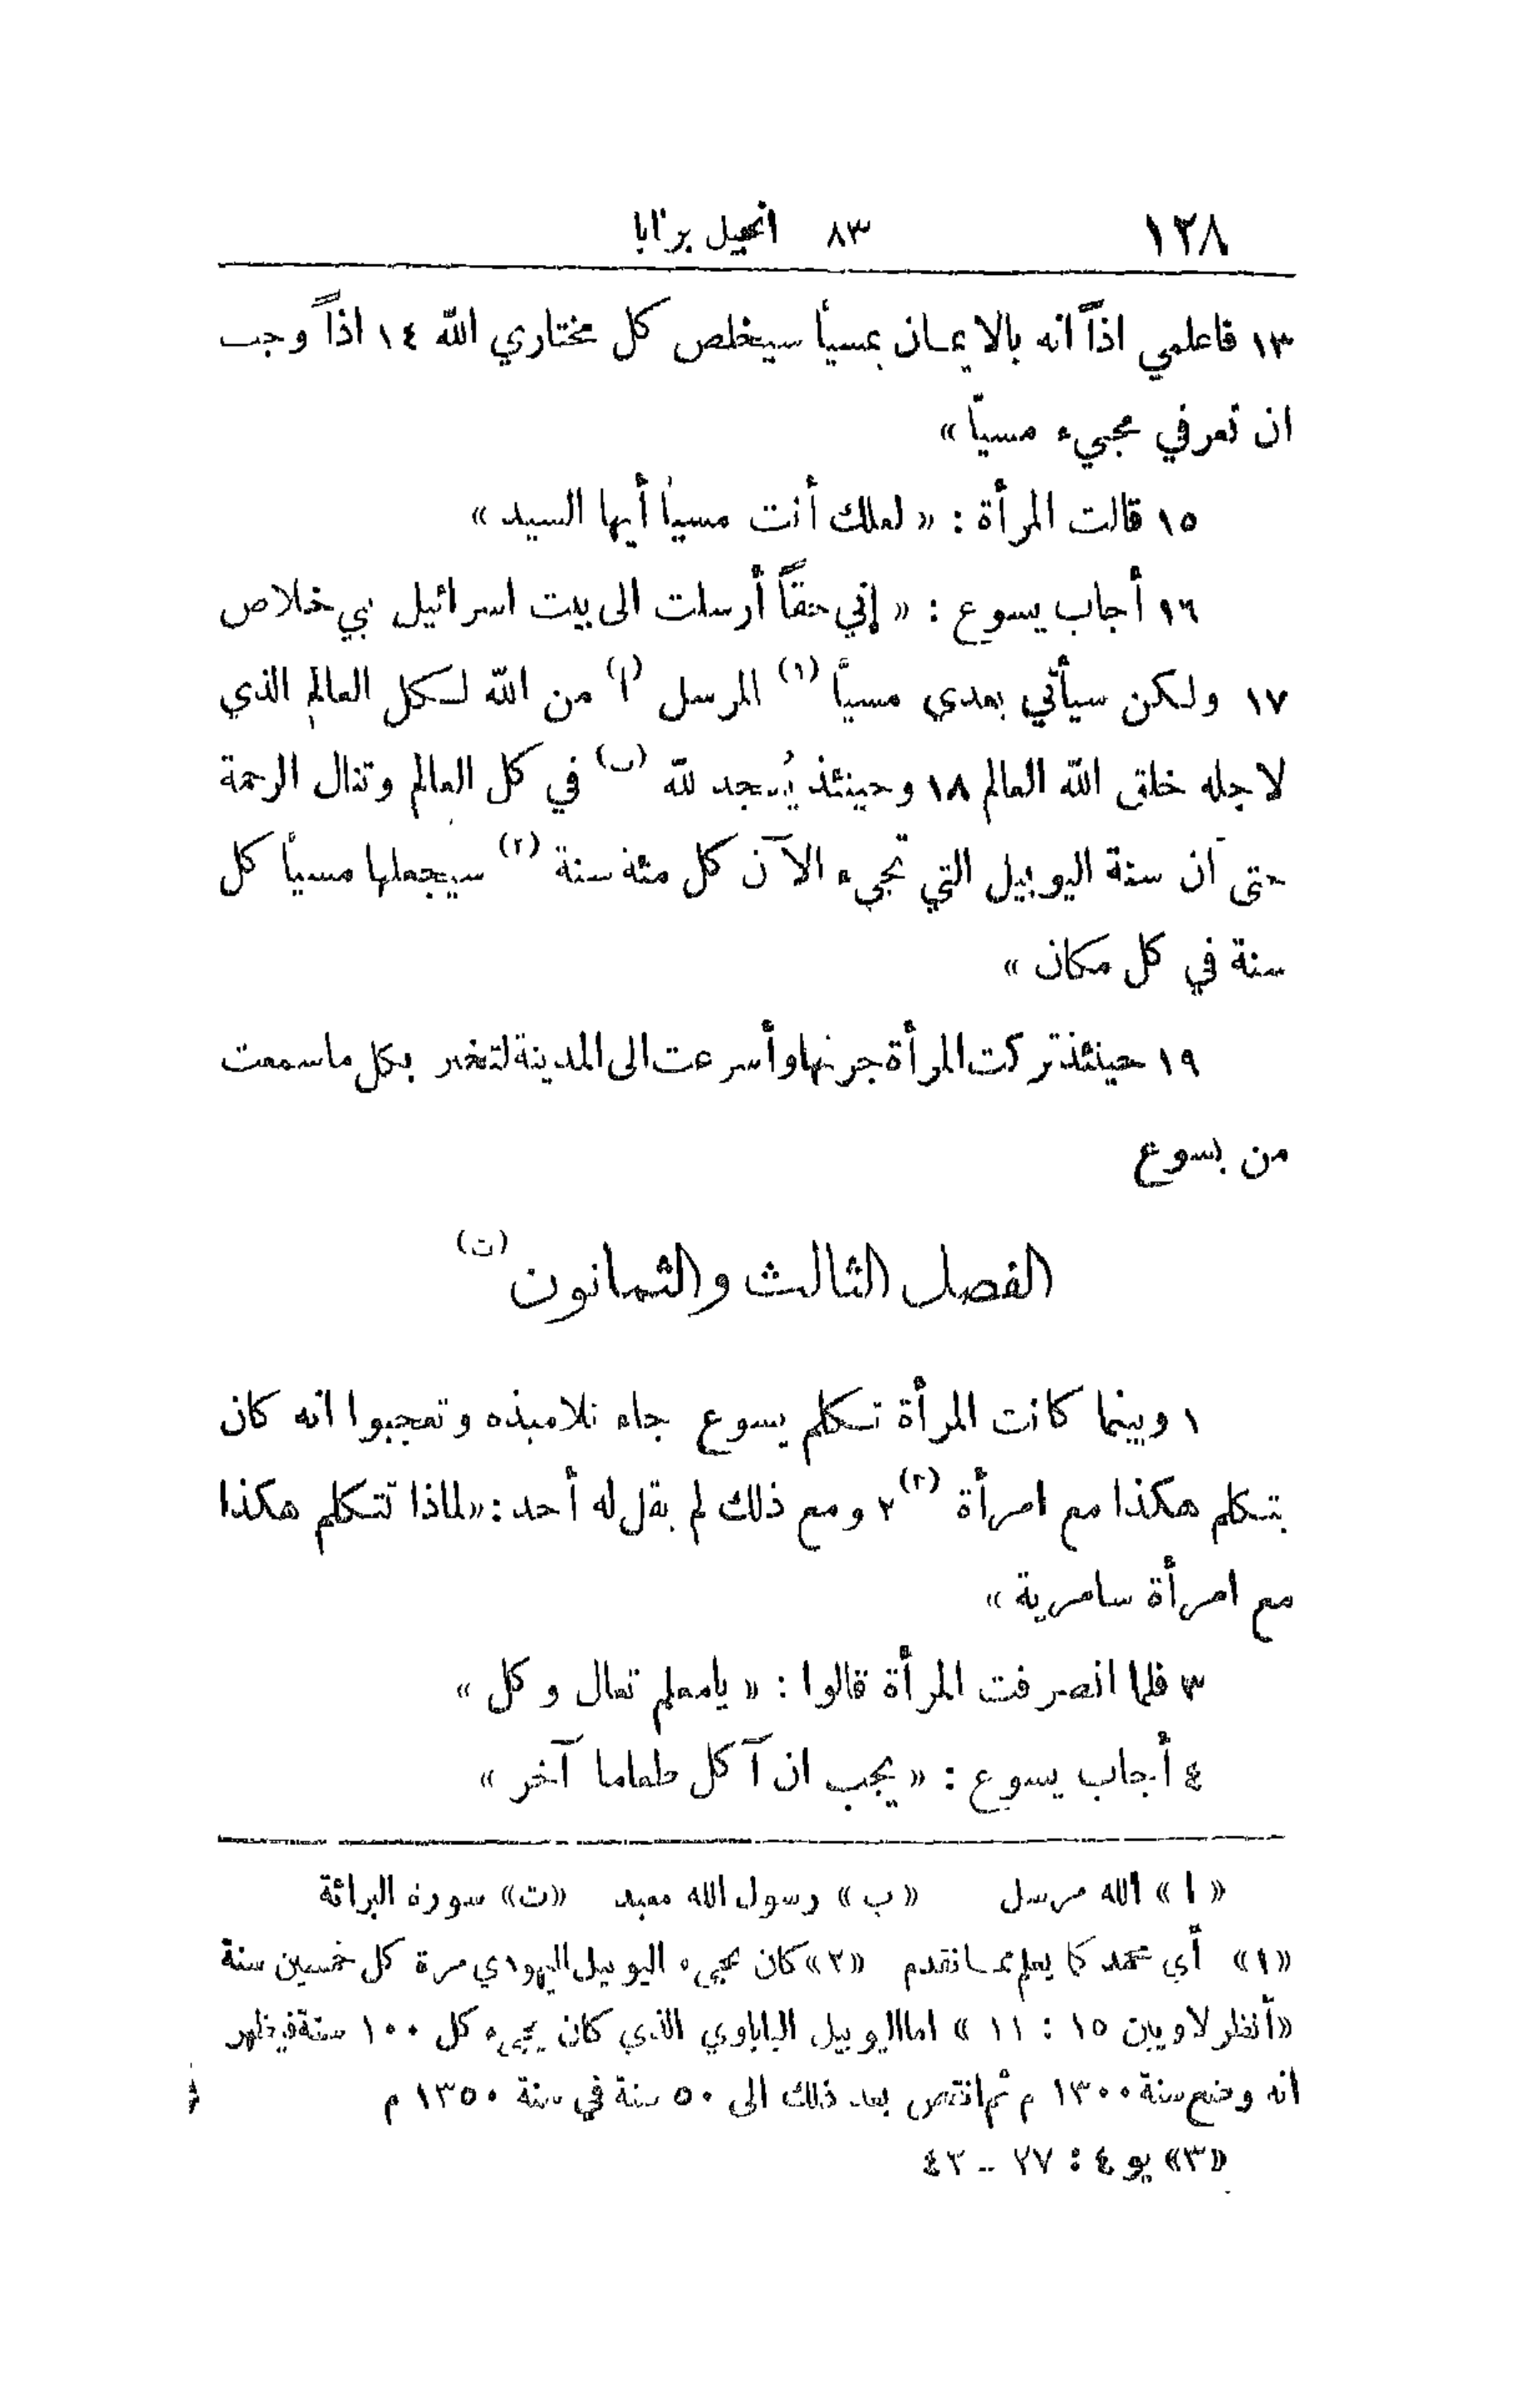 ١٢٨ ٨٣ انجيل برنابا
١٣ فاعلمي اذاً انه بالايمان بمسيأ سيخلص كل مختاري الله ١٤ اذاً وجب
ان تعرفي مجيء مسيّا »
١٥ قالت المرأة : « لعلك أنت مسيا أيها السيد »
١٦ أجاب يسوع : « إني حقاً أرسلت الى بيت اسرائيل نبي خلاص
١٧ ولكن سيأتي بعدي مسيّا (١) المرسل (ا) من الله لكل العالم الذي
لاجله خلق الله العالم ١٨ وحينئذ يُسجد لله (ب) في كل العالم وتنال الرحمة
حتى أن سنة اليوبيل التي تجيء الآن كل مئة سنة (٢) سيجعلها مسيأ كل
سنة في كل مكان »
١٩ حينئذ تركت المرأة جرتها وأسرعت الى المدينة لتخبر بكل ما سمعت
من يسوع
الفصل الثالث والثمانون (ت)
١ وبينما كانت المرأة تكلم يسوع جاء تلاميذه وتعجبوا انه كان
يتكلم هكذا مع امرأة (٣) ٢ ومع ذلك لم يقل له أحد : « لماذا تتكلم هكذا
مع امرأة سامرية »
٣ فلما انصرفت المرأة قالوا : « يامعلم تعال وكل »
٤ أجاب يسوع : « يجب ان آكل طعاما آخر »
« ا » الله مرسل « ب » رسول الله معبد «ت» سورة البرائة
«١» أي محمد كما يعلم مما تقدم «٢» كان مجيء اليوبيل اليهودي مرة كل خمسين سنة
«أنظر لاويين ١٥ : ١١ » اما اليوبيل الباباوي الذي كان يجيء كل ١٠٠ سنة فيظهر
انه وضع سنة ١٣٠٠ م ثم انتقص بعد ذلك الى ٥٠ سنة في سنة ١٣٥٠ م
«٣» يو ٤ : ٢٧ - ٤٢